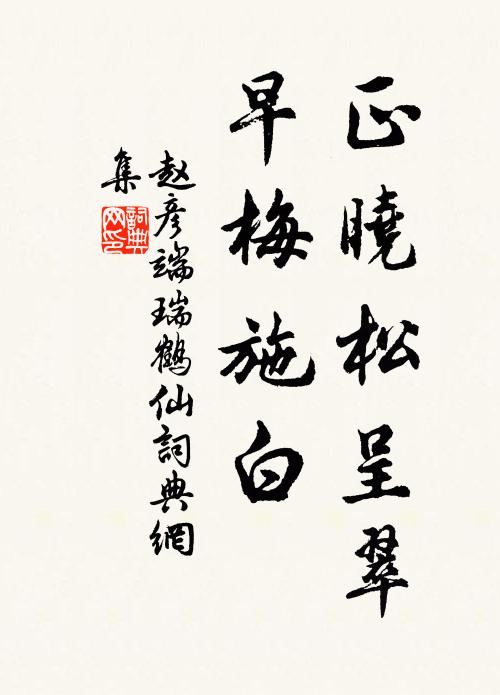 正曉松呈翠
早梅施白
赵彦端瑞鶴仙詞典網
集
詞典
网印